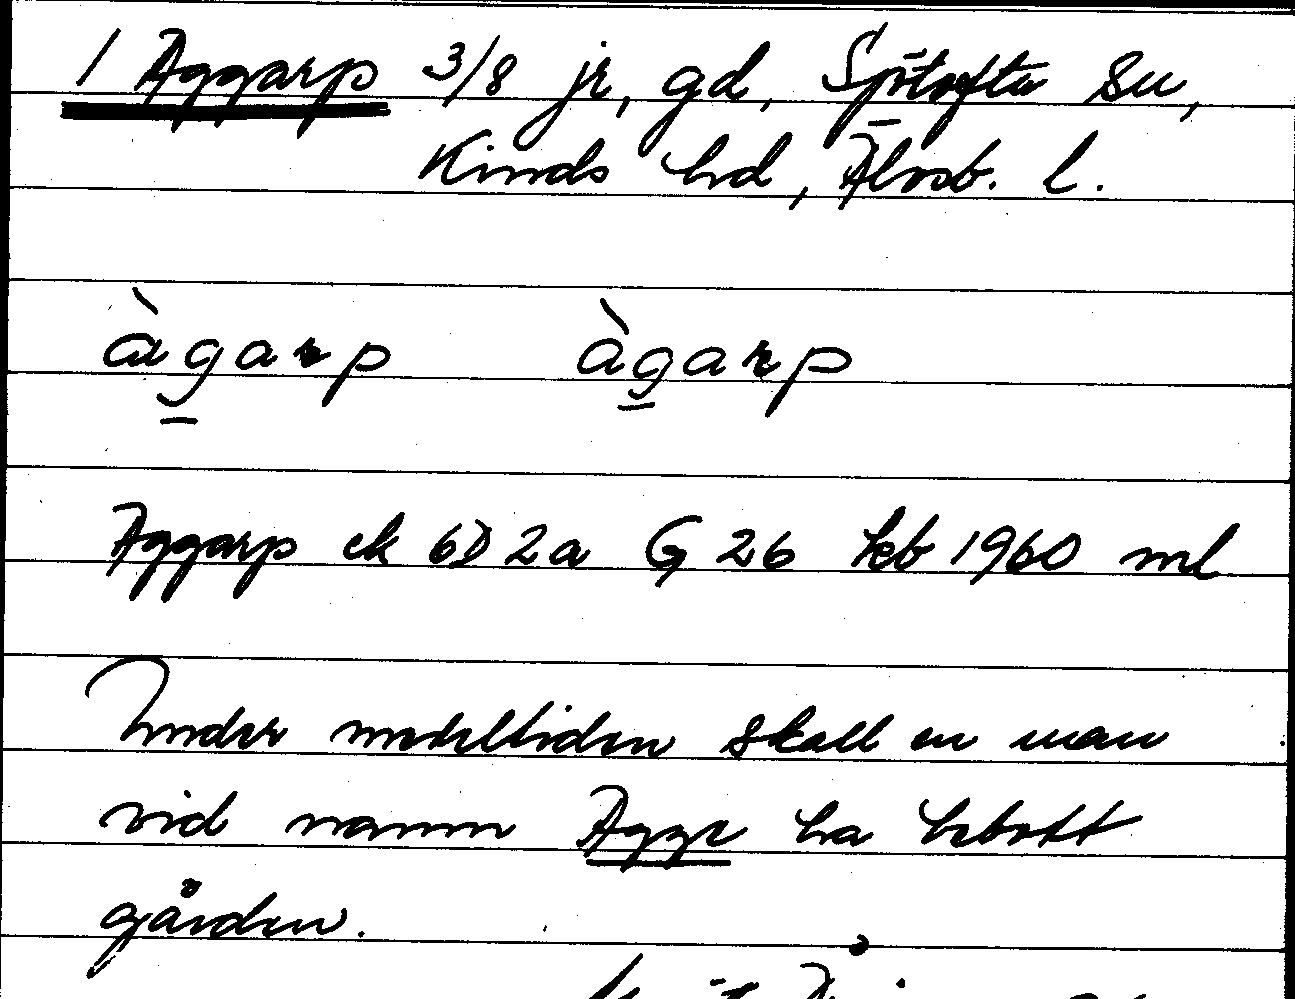 1 Aggarp 3/8 jr, gd, Sjötofta sn,
Kinds hd, Älvsb. l.
àgarp àgarp
Aggarp ek 6D2a G 26 kb 1960 ml
Under medeltiden skall en man
vid namn Agge ha bebott
gården.